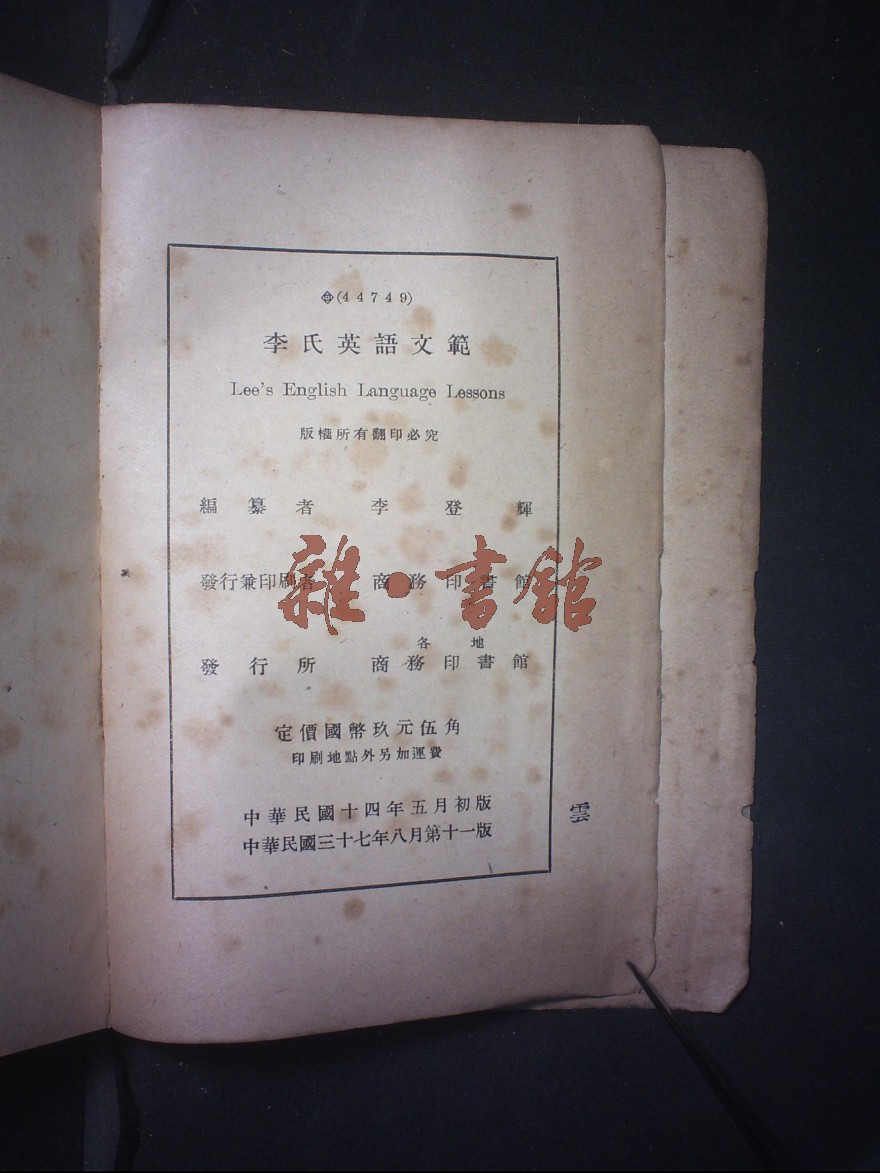 (44749)
李氏英語文範
Lee's English Language Lessons
版權所有翻印必究
編纂者 李登輝
發行兼印刷者 商務印書館
各地
發行所 商務印書館
定價國幣玖元伍角
印刷地點外另加運費
中華民國十四年五月初版
中華民國三十七年八月第十一版
雲
雜·書館